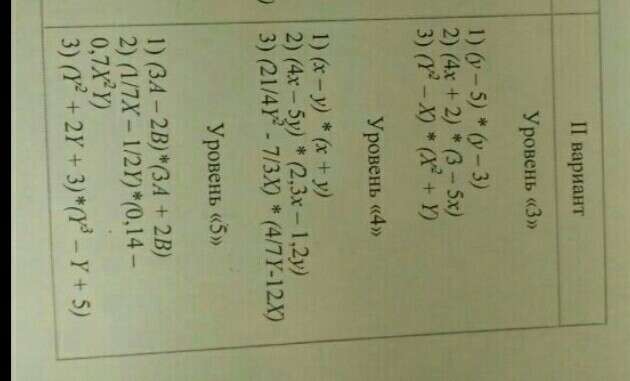 II вариант
Уровень «3»
1) (y – 5) * (y – 3)
2) (4x + 2) * (3 – 5x)
3) (Y² – X) * (X² + Y)
Уровень «4»
1) (x – y) * (x + y)
2) (4x – 5y) * (2,3x – 1,2y)
3) (21/4Y² - 7/3X) * (4/7Y-12X)
Уровень «5»
1) (3A – 2B)*(3A + 2B)
2) (1/7X – 1/2Y)*(0,14 –
0,7X²Y)
3) (Y² + 2Y + 3)*(Y³ – Y + 5)